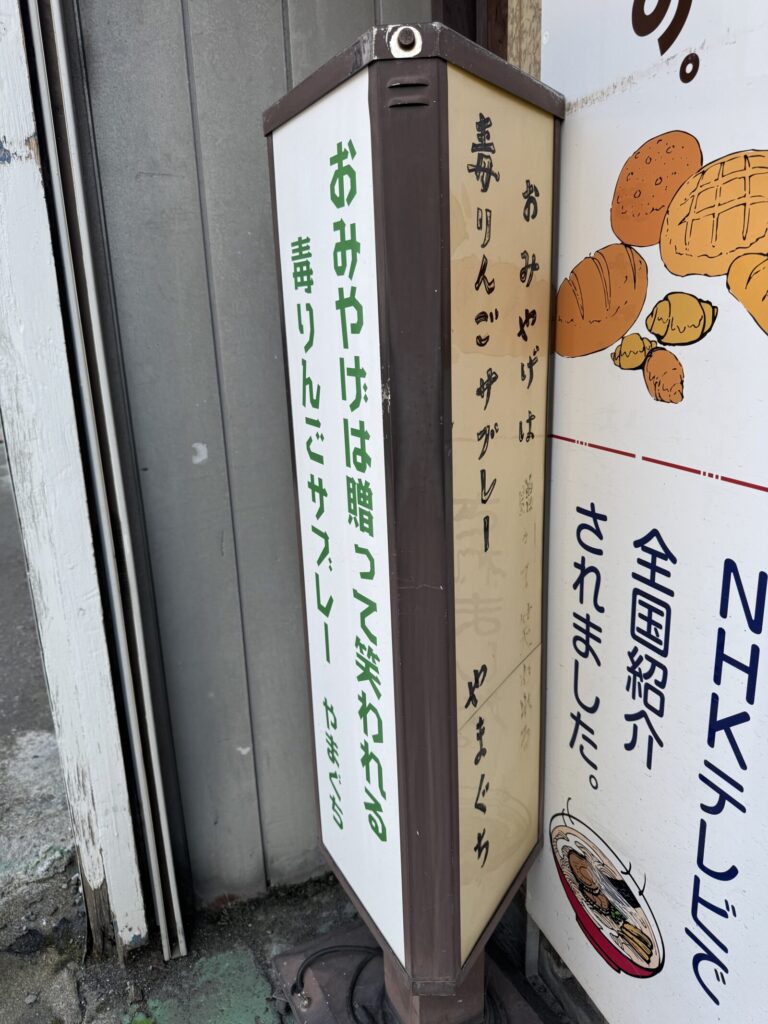 おみやげは贈って笑われる
毒りんごサブレー やまぐち
おみやげは贈って笑われる
毒りんごサブレー やまぐち
す。
NHKテレビで
全国紹介
されました。